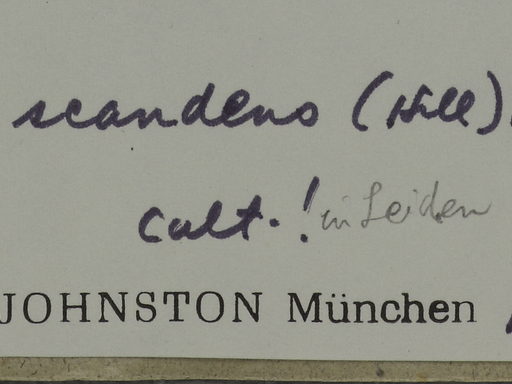 scandens (Hill)
cult.! in Leiden
JOHNSTON München